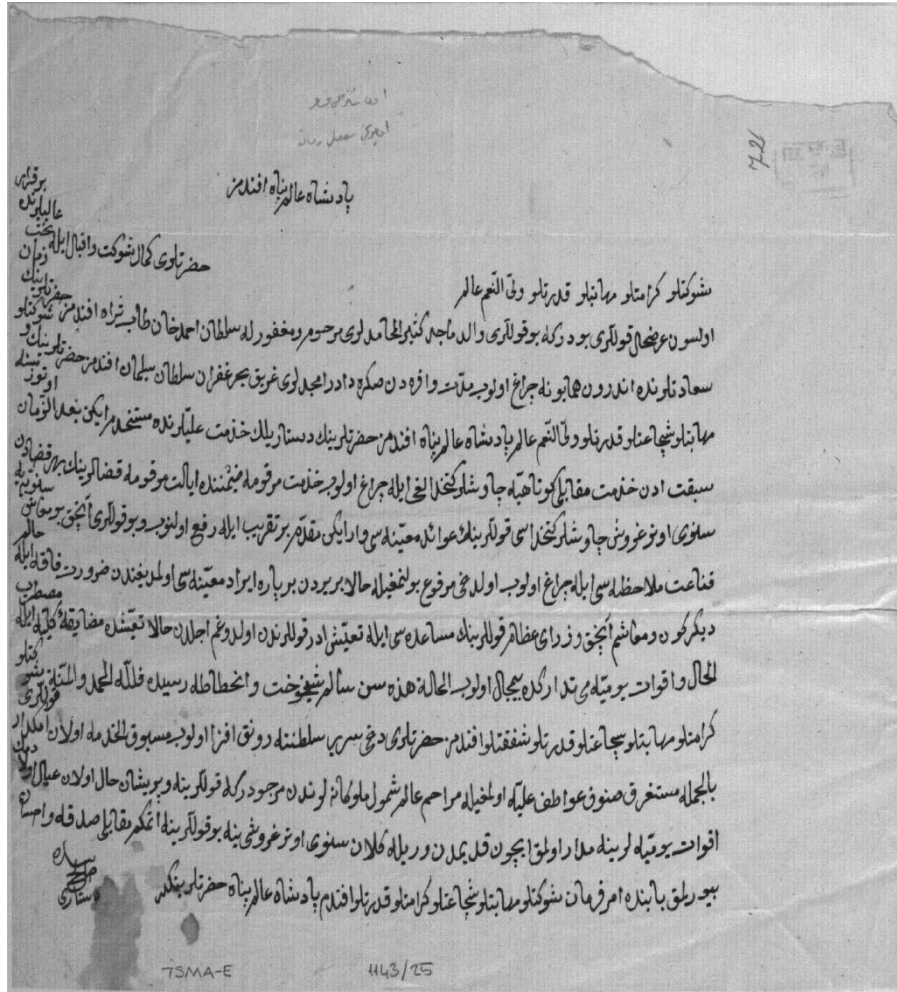 72
پادشاه عالمپناه افندمز
حضرتلری کمال شوکت و اقبال ایله
شوکتلو کرامتلو مهابتلو قدرتلو ولی النعم عالم
اولسون عرضحال قوللری بودرکه بو قوللری والد ماجد کثیر المحامدلری مرحوم و مغفور له سلطان احمد خان طاب ثراه افندمز
سعادتلرنده اندرون همایونه چراغ اولوب مدت وافره دن صکره دادر امجدلری غریق بحر غفران سلطان سلیمان افندمز حضرتلرینك
مهابتلو شجاعتلو قدرتلو ولی النعم عالم پادشاه عالمپناه افندمز حضرتلرینك دستاریلك خدمت علیه لرنده مستخدم ایکن بعد الزمان
سبقت ایدن خدمت مقابلی کوتاهیه چاوشلر کتخدالغی ایله چراغ اولوب خدمت مرقومه ضمننده ایالت مرقومه قضالرینك بهر قضادن
سنوی اونر غروش چاوشلر کتخداسی قوللرینك عوائد معینه سی وار ایکن مقدم بر تقریب ایله رفع اولنوب و بو قوللری انجق بو معاش
قناعت ملاحظه سی ایله چراغ اولوب اولدخی مرفوع بولنمغیله حالا بر یردن بر پاره ایراد معینه سی اولمدیغندن ضرورت فاقه ایله
دیکرکون و معاشم انجق وزرای عظام قوللرینك مساعده سی ایله تعیش ایدر قوللرندن اولدوغم اجلدن حالا تعیشده مضایقهٔ کلیه ایله
الحال و اقوات یومیه می تدارکده بیمجال اولوب الحالة هذه سن سالم شیخوخت و انحطاطه رسیده فلله الحمد والمنه
کرامتلو مهابتلو شجاعتلو قدرتلو شفقتلو افندمز حضرتلری دخی سریر سلطنته رونق افزا اولوب مسبوق الخدمه اولان
بالجمله مستغرق صنوف عواطف علیه اولمغیله مراحم عالم شمول ملوکانه لرندن مرجودرکه قوللرینه و پریشان حال اولان عیال
اقوات یومیه لرینه مدار اولمق ایچون قدیمدن ویریله کلان سنوی اونر غروشی ینه بو قوللرینه اتمکم مقابلی صدقه و احسان
بیورلمق بابنده امر فرمان شوکتلو مهابتلو شجاعتلو کرامتلو قدرتلو افندم پادشاه عالمپناه حضرتلرینکدر
بنده
صالح
دستاری
TSMA-E 1143/25